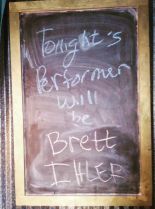 Tonight's
Performer
will
be
Brett
IHLER